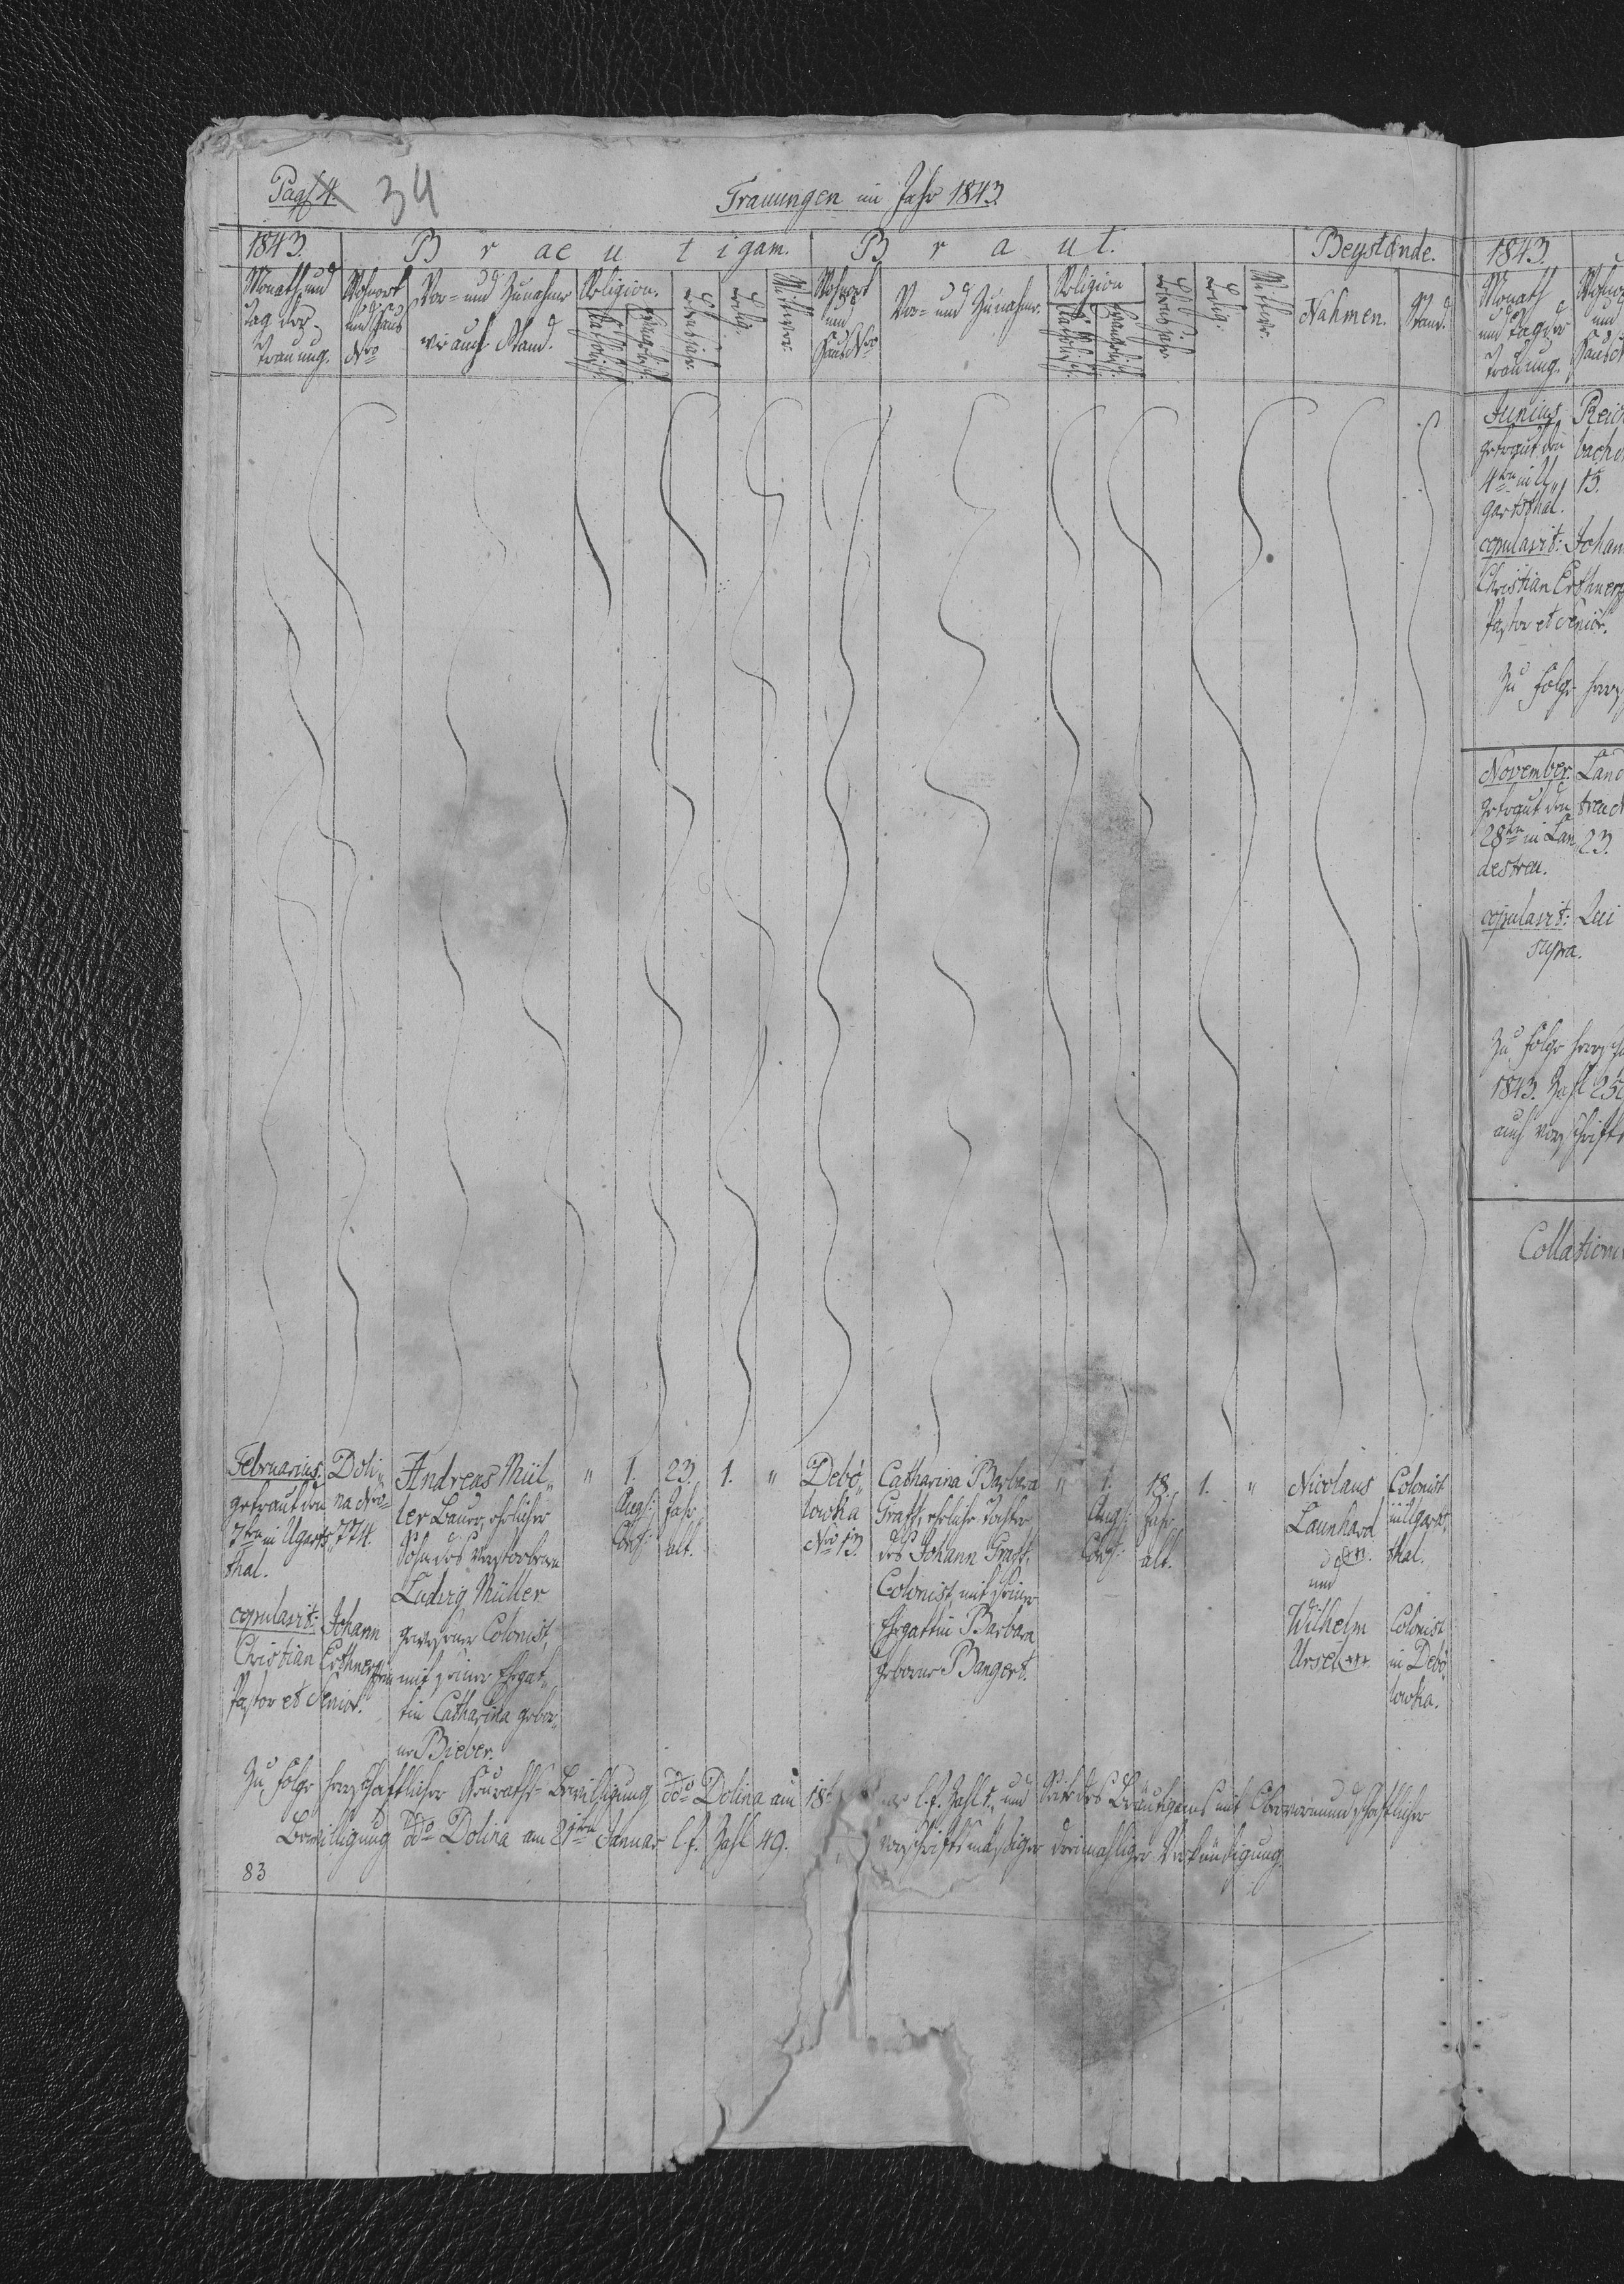 Pag: 4. 34
Trauungen im Jahr 1843.
1843. Braeutigam. Braut. Beystände.
Monath und Tag der Trauung.
Wohnort und Haus Nro
Vor- und Zunahme wie auch Stand.
Religion.
Katholisch.
Evangelisch.
Lebensjahr.
Ledig.
Wittwer.
Wohnort und Haus Nro
Vor- und Zunahme.
Religion
Katholisch.
Evangelisch.
Lebensjahr.
Ledig.
Wittwe.
Nahmen.
Stand.
Februarius.
getraut den
7ten in Ugarts
thal.
copulavit: Johann
Christian Erthner
Pastor et Senior.
Doli„
na Nro
774.
Andreas Mül„
ler Bauer, ehelicher
Sohn des verstorbenen
Ludwig Müller
gewesener Colonist,
mit seiner Ehegat„
tin Catharina gebor„
ne Bieber.
„
1.
Augs:
Conf:
23.
Jahr
alt.
1.
„
Debo„
lowka
Nro 13.
Catharina Barbara
Graff, eheliche Tochter
des Johann Graff,
Colonist, mit seiner
Ehegattin Barbara
geborne Bangert.
„
1.
Augs:
Conf:
18.
Jahr
alt.
1.
„
Nicolaus
Launhard
und
Wilhelm
Ursel
Colonist
in Ugarts„
thal.
Colonist
in Debo„
lowka.
Zu Folge herrschaftlicher Heuraths-Bewilligung ddo Dolina am 18t
l. J. Zahl und Seite des Bräutigams mit Obervormundschaftlicher
Bewilligung ddo Dolina am 21ten Januar l. J. Zahl 49.
vorschriftsmäßiger dreimahliger Verkündigung.
83
1843.
Monath
und Tag der
Trauung.
Junius.
getraut den
4ten in U„
gartsthal.
15.
copulavit: Johan
Christian Erthner
Pastor et Senior.
Zu Folge
November.
getraut den
28ten in Lan„
destreu.
23.
copulavit: Qui
supra.
Zu Folge
1843. Zahl
auch
Collation